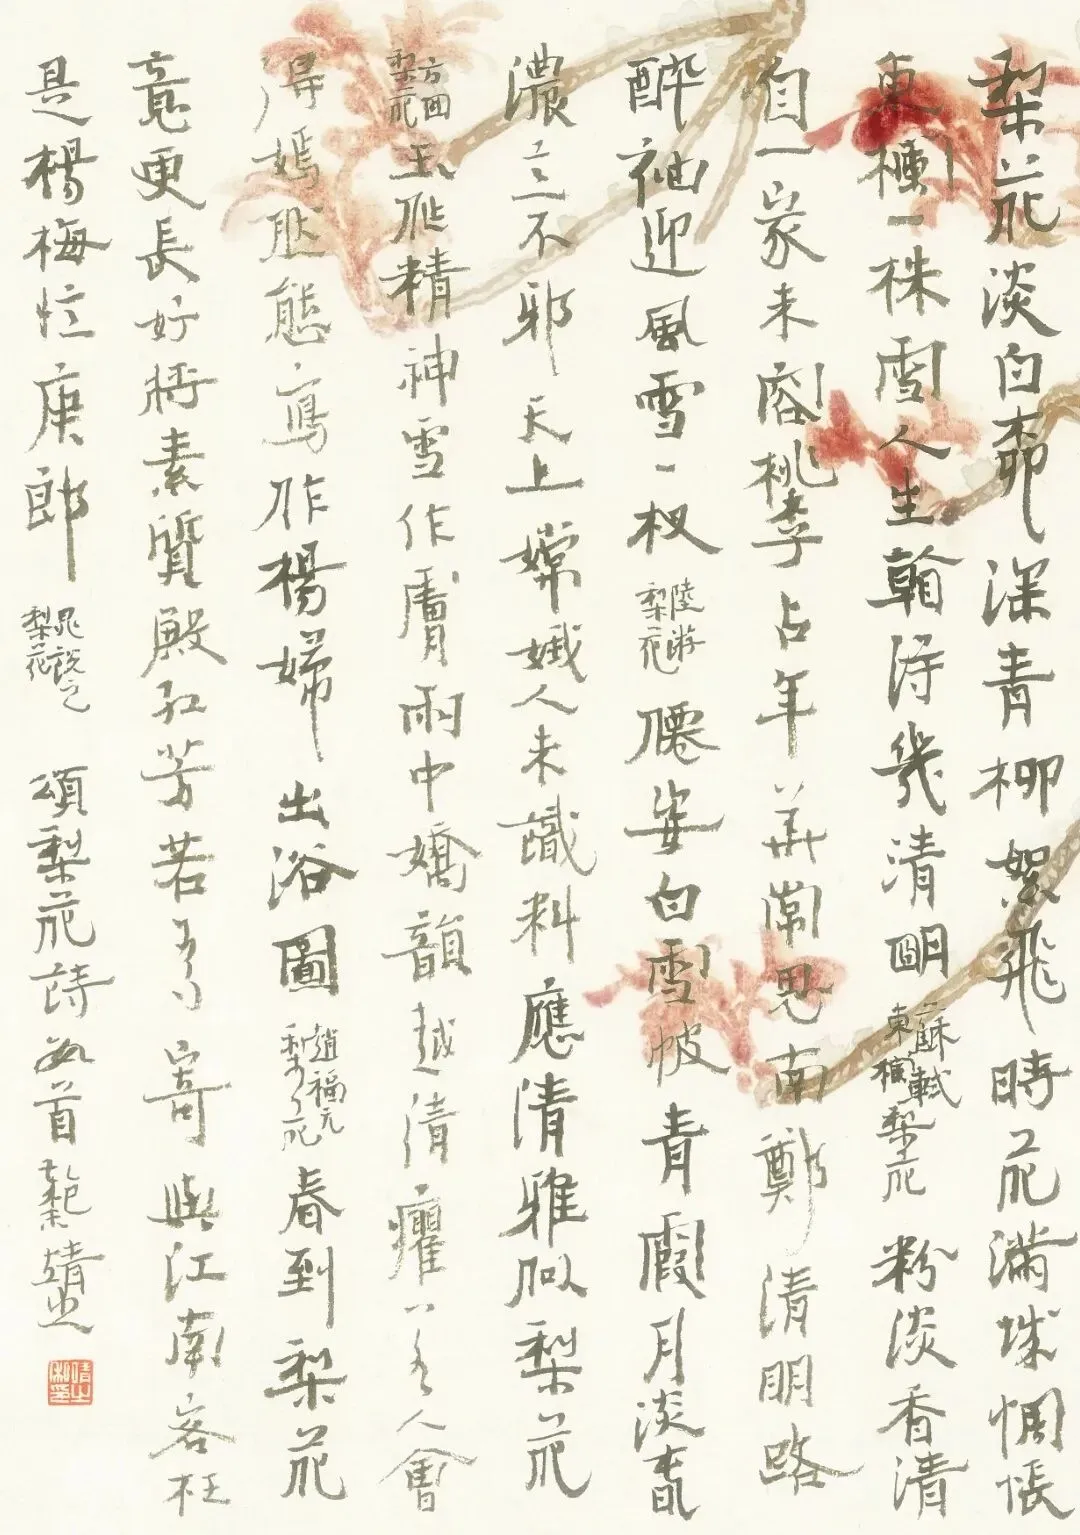 梨花淡白柳深青柳絮飛時花滿城惆悵
東欄一株雪人生看得幾清明蘇軾東欄梨花粉淡香清
自一家未容桃李占年華常思南鄭清明路
醉袖迎風雪一杈陸游梨花僊姿白雪帔青霞月淡春
濃意不邪天上嫦娥人未識料應清雅似梨花
方回梨花玉作精神雪作膚雨中嬌韻越清癯若人會
得嫣然態寫作楊妃出浴圖趙福元梨花春到梨花
意更長好將素質殿紅芳若爲寄與江南客枉
是楊梅忆庾郎晁說之梨花頌梨花詩數首靖之